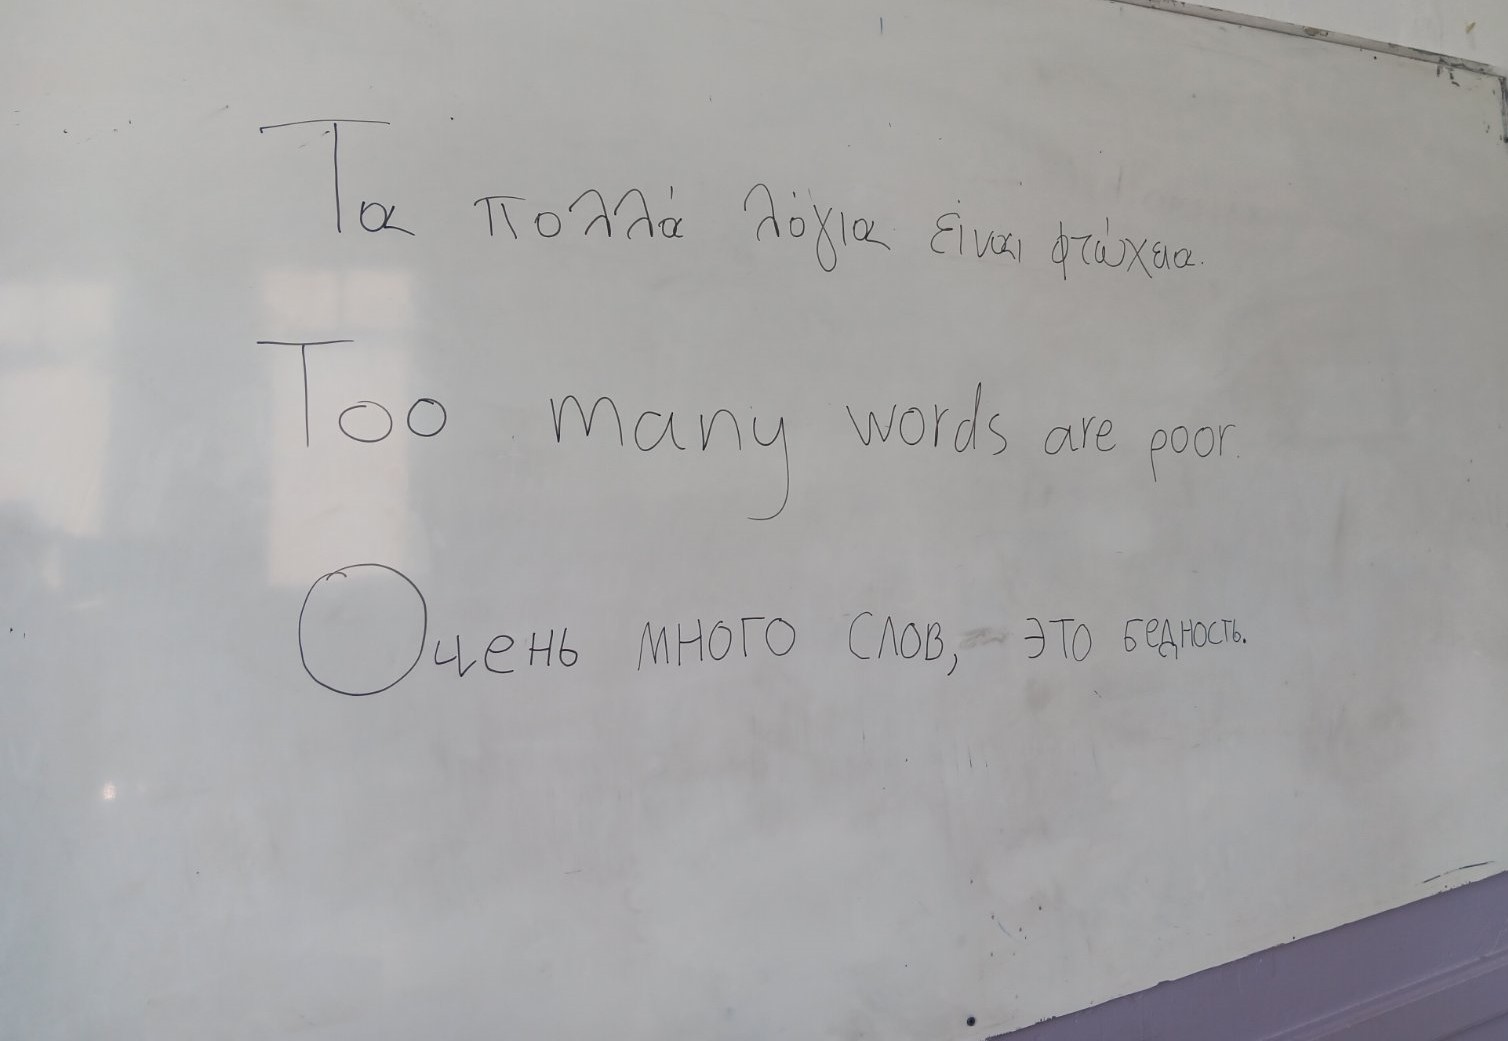 Τα πολλά λόγια είναι φτώχεια.
Too many words are poor.
Очень много слов, это бедность.